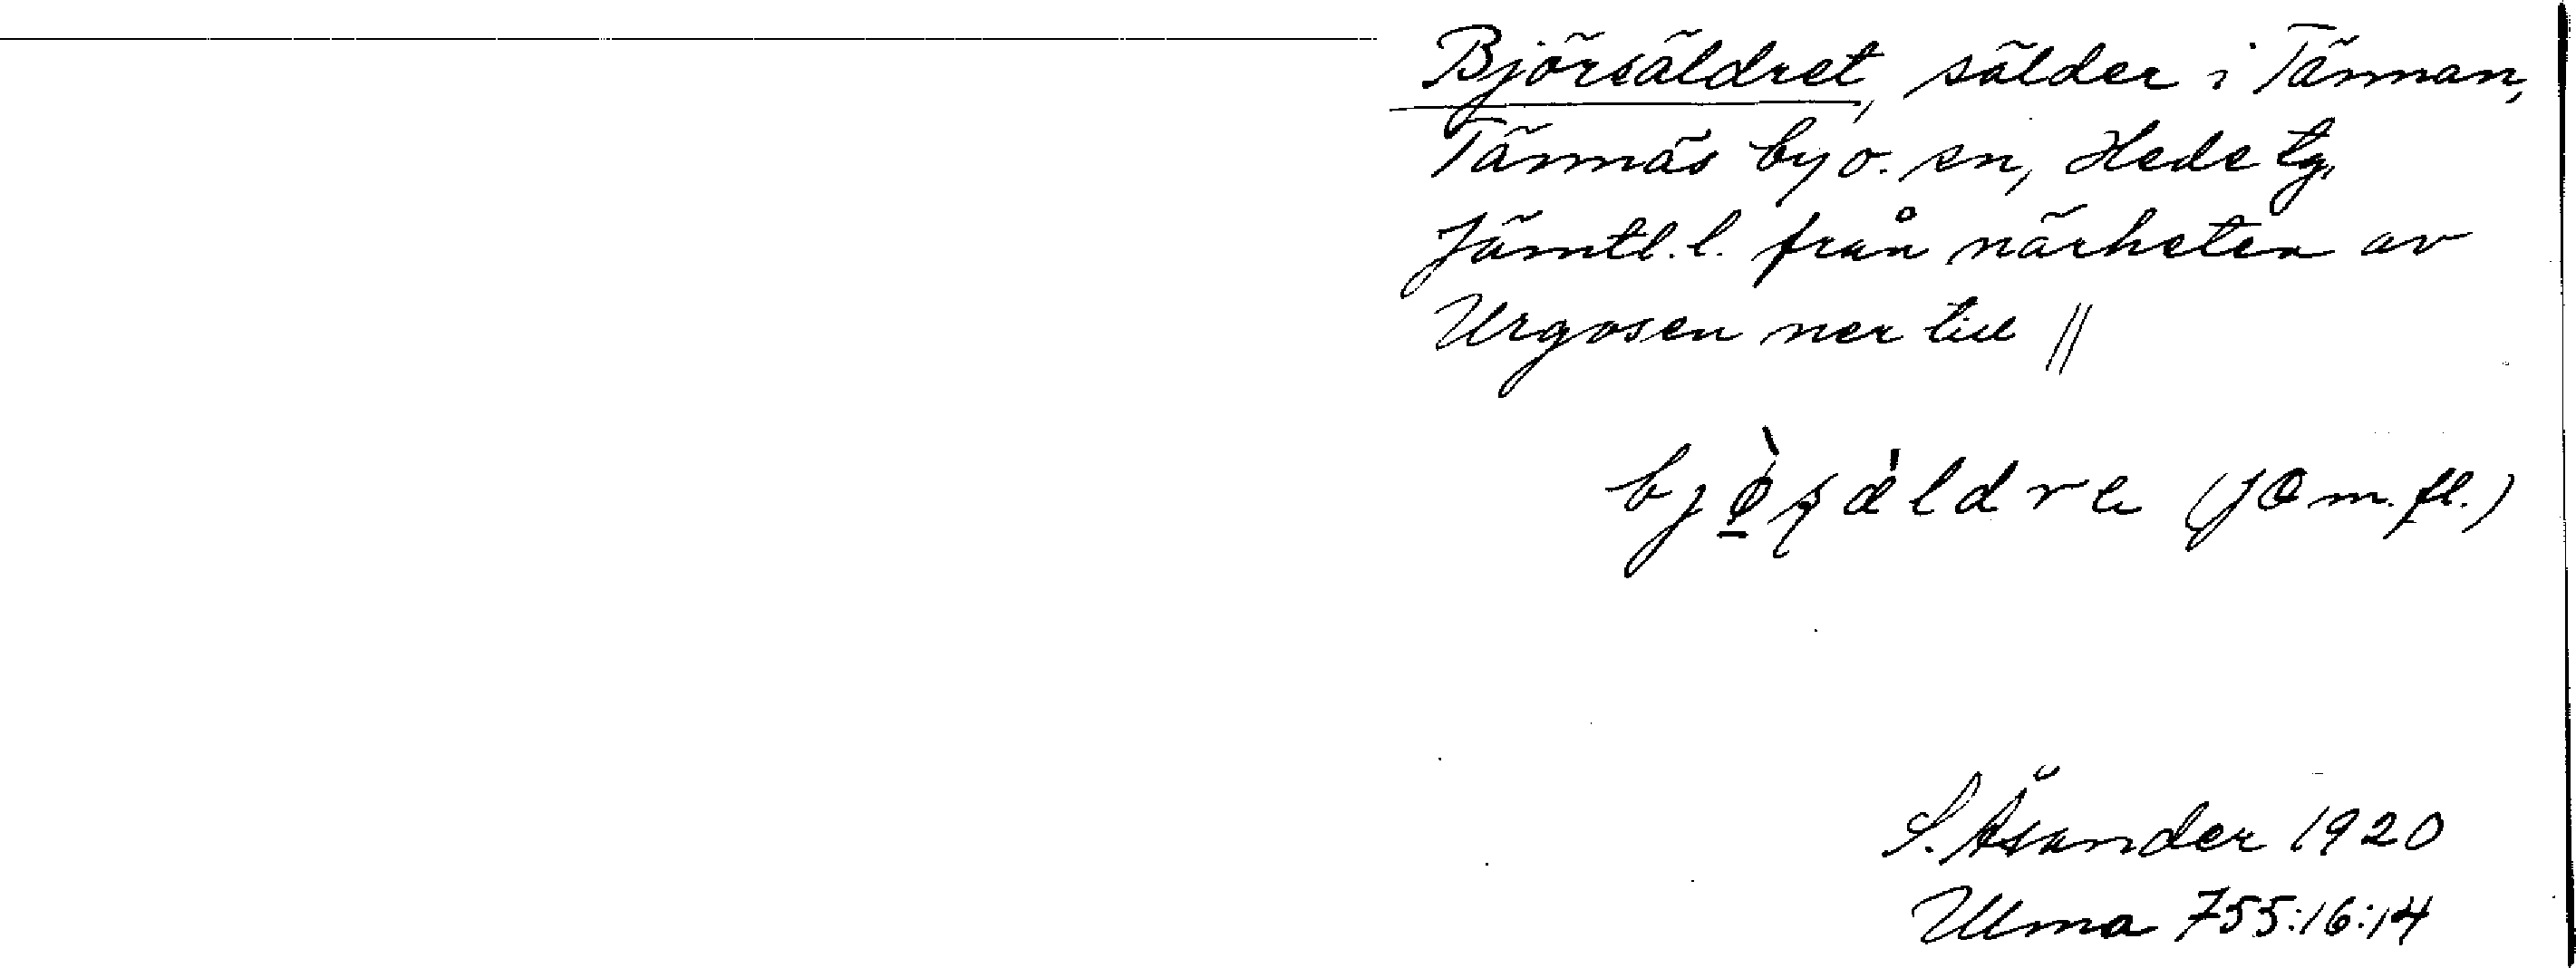 Björsäldret, sälder i Tännan,
Tännäs by o. sn, Hede tg,
Jämtl. l. från närheten av
Urgosen ner till //
(JO m. fl.)
S. Åsander 1920
Ulma 755:16:14